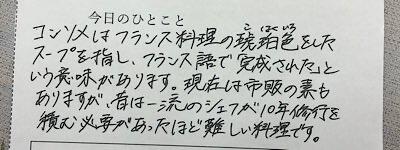 今日のひとこと
コンソメはフランス料理の琥珀色をした
スープを指し、フランス語で「完成された」と
いう意味があります。現在は市販の素も
ありますが、昔は一流のシェフが10年修行を
積む必要があったほど難しい料理です。